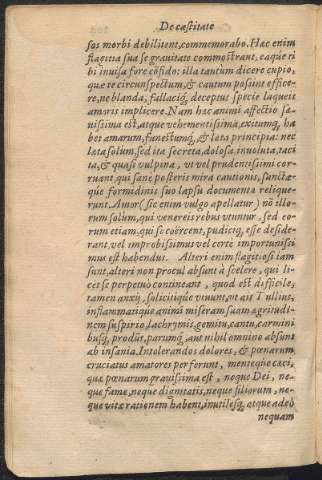 De castitate
sos morbi debilitent, commemorabo. Hæc enim
flagitia sua se grauitate commõstrant, eaq́ue ri
bi inuisa fore cõfido: illa tantum dicere cupio,
quæ te circunspectum, & cautum possint effice-
re, ne blanda, fallaciq́, deceptus specie laqueis
amoris implicere. Nam hæc animi affectio sæ-
uissima est, atque vehementissima, exitumq́, ha
bet amarum, funestumq́, & læta principia: nec
læta solum, sed ita secreta, dolosa, inuoluta, taci
ta, & quasi vulpina, vt vel prudentissimi cor-
ruant, qui sanè posteris mira cautionis, sunctæ-
que formidinis suo lapsu documenta relique-
runt. Amor (sic enim vulgo apellatur) nõ illo-
rum solum, qui venereis rebus vtuntur, sed eo-
rum etiam, qui se coërcent, pudiciq́, esse deside-
rant, vel improbissimus vel certè importunissi
mus est habendus. Alteri enim flagitiosi iam
sunt, alteri non procul absunt à scelere, qui li-
cet se perpetuò contineant, quod est difficile,
tamen anxij, solicitiq́ue viuunt, vt ait Tullius,
inflammatiq́ue animi miseram suam ægritudi-
nem suspirio, lachrymis, gemitu, cantu, carmini
busq́, produnt, parumq́, aut nihil omnino absunt
ab insania. Intolerandos dolores, & pœnarum
cruciatus amatores perferunt, menteq́ue cæci,
quæ pœnarum grauissima est, neque Dei, ne-
que famæ, neque dignitatis, neque filiorum, ne-
que vitæ rationem habent, inutilesq́, atque adeò
nequam